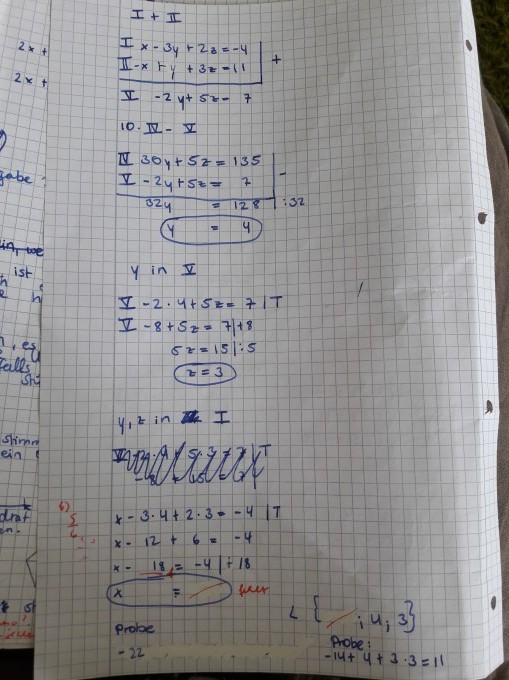 I + II
I x - 3y + 2z = -4
II -x + y + 3z = 11 | +
V -2y + 5z = 7
10. IV - V
IV 30y + 5z = 135
V -2y + 5z = 7 | -
32y = 128 | :32
y = 4
y in V
V -2 · 4 + 5z = 7 | T
V -8 + 5z = 7 | +8
5z = 15 | :5
z = 3
y, z in I
x - 3·4 + 2·3 = -4 | T
x - 12 + 6 = -4
x - 18 = -4 | + 18
x =
L { ; 4; 3}
Probe
-22
Probe:
-14 + 4 + 3·3 = 11
2x +
2x +
gabe
ist
falls
ein